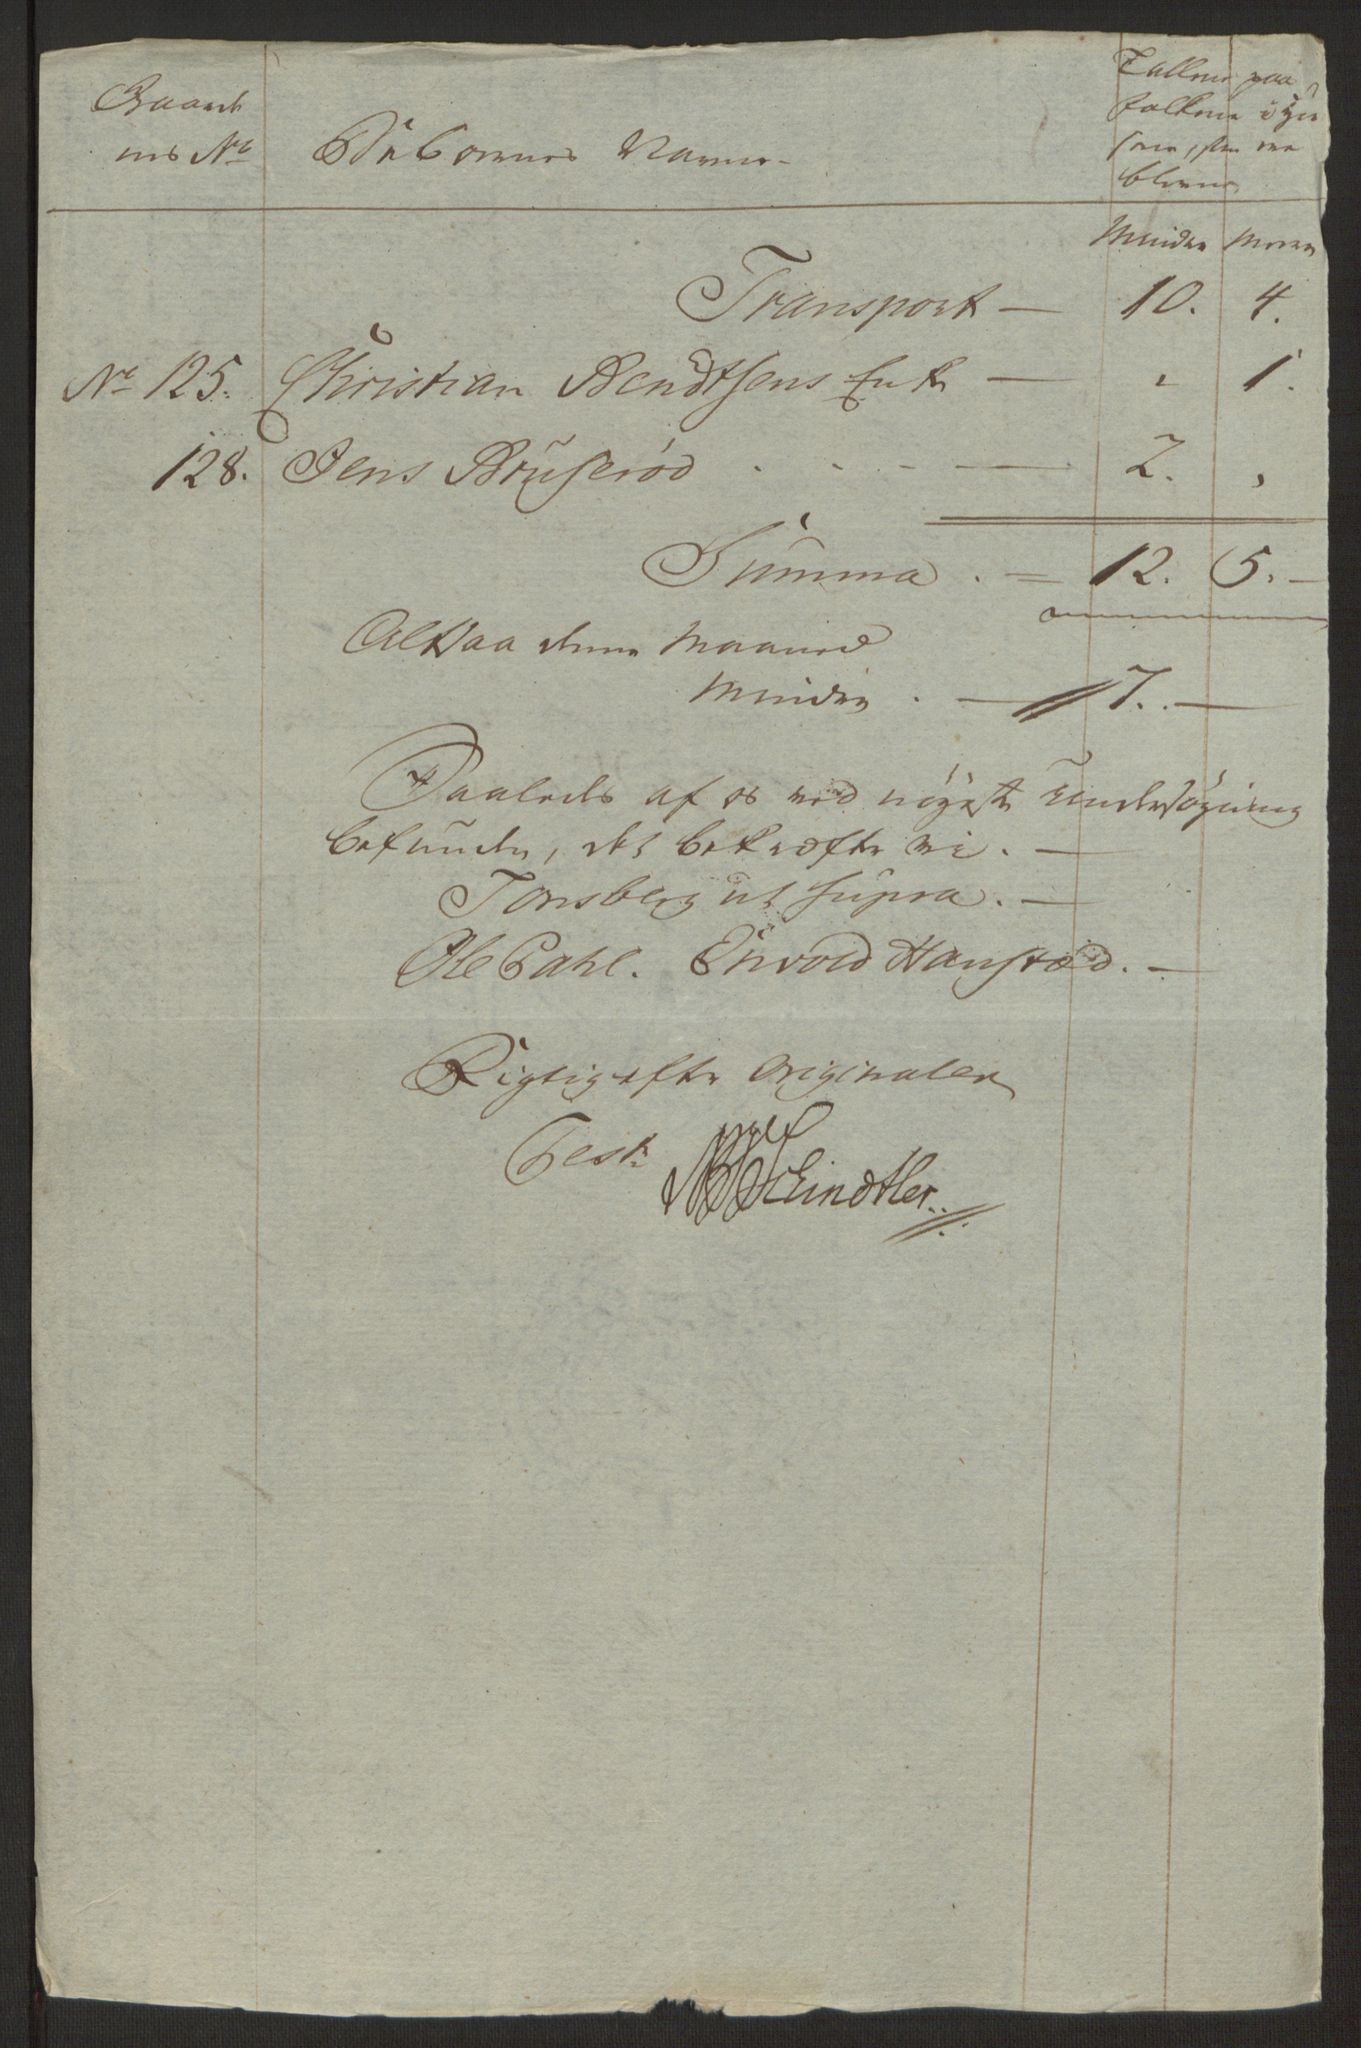 Gaarde
nes No
Beboernes Navne.
Tallene paa
folkene i Hu
sene, som ere
blevne
Mindre Meere
Transport — 10. 4.
No 125. Christian Bendtsens Enke — " 1.
128. Jens Bruserød . . . — 2. "
Summa . — 12. 5. —
Altsaa denne Maaned
Mindre . — 7. —
Saaledes af os ved nöyeste Undersögning
befunden, det bekræfter vi. —
Tonsberg ut supra. —
Ole Dahl. Envold Hansræd. —
Rigtig efter Originalen
Test.
Lindtler